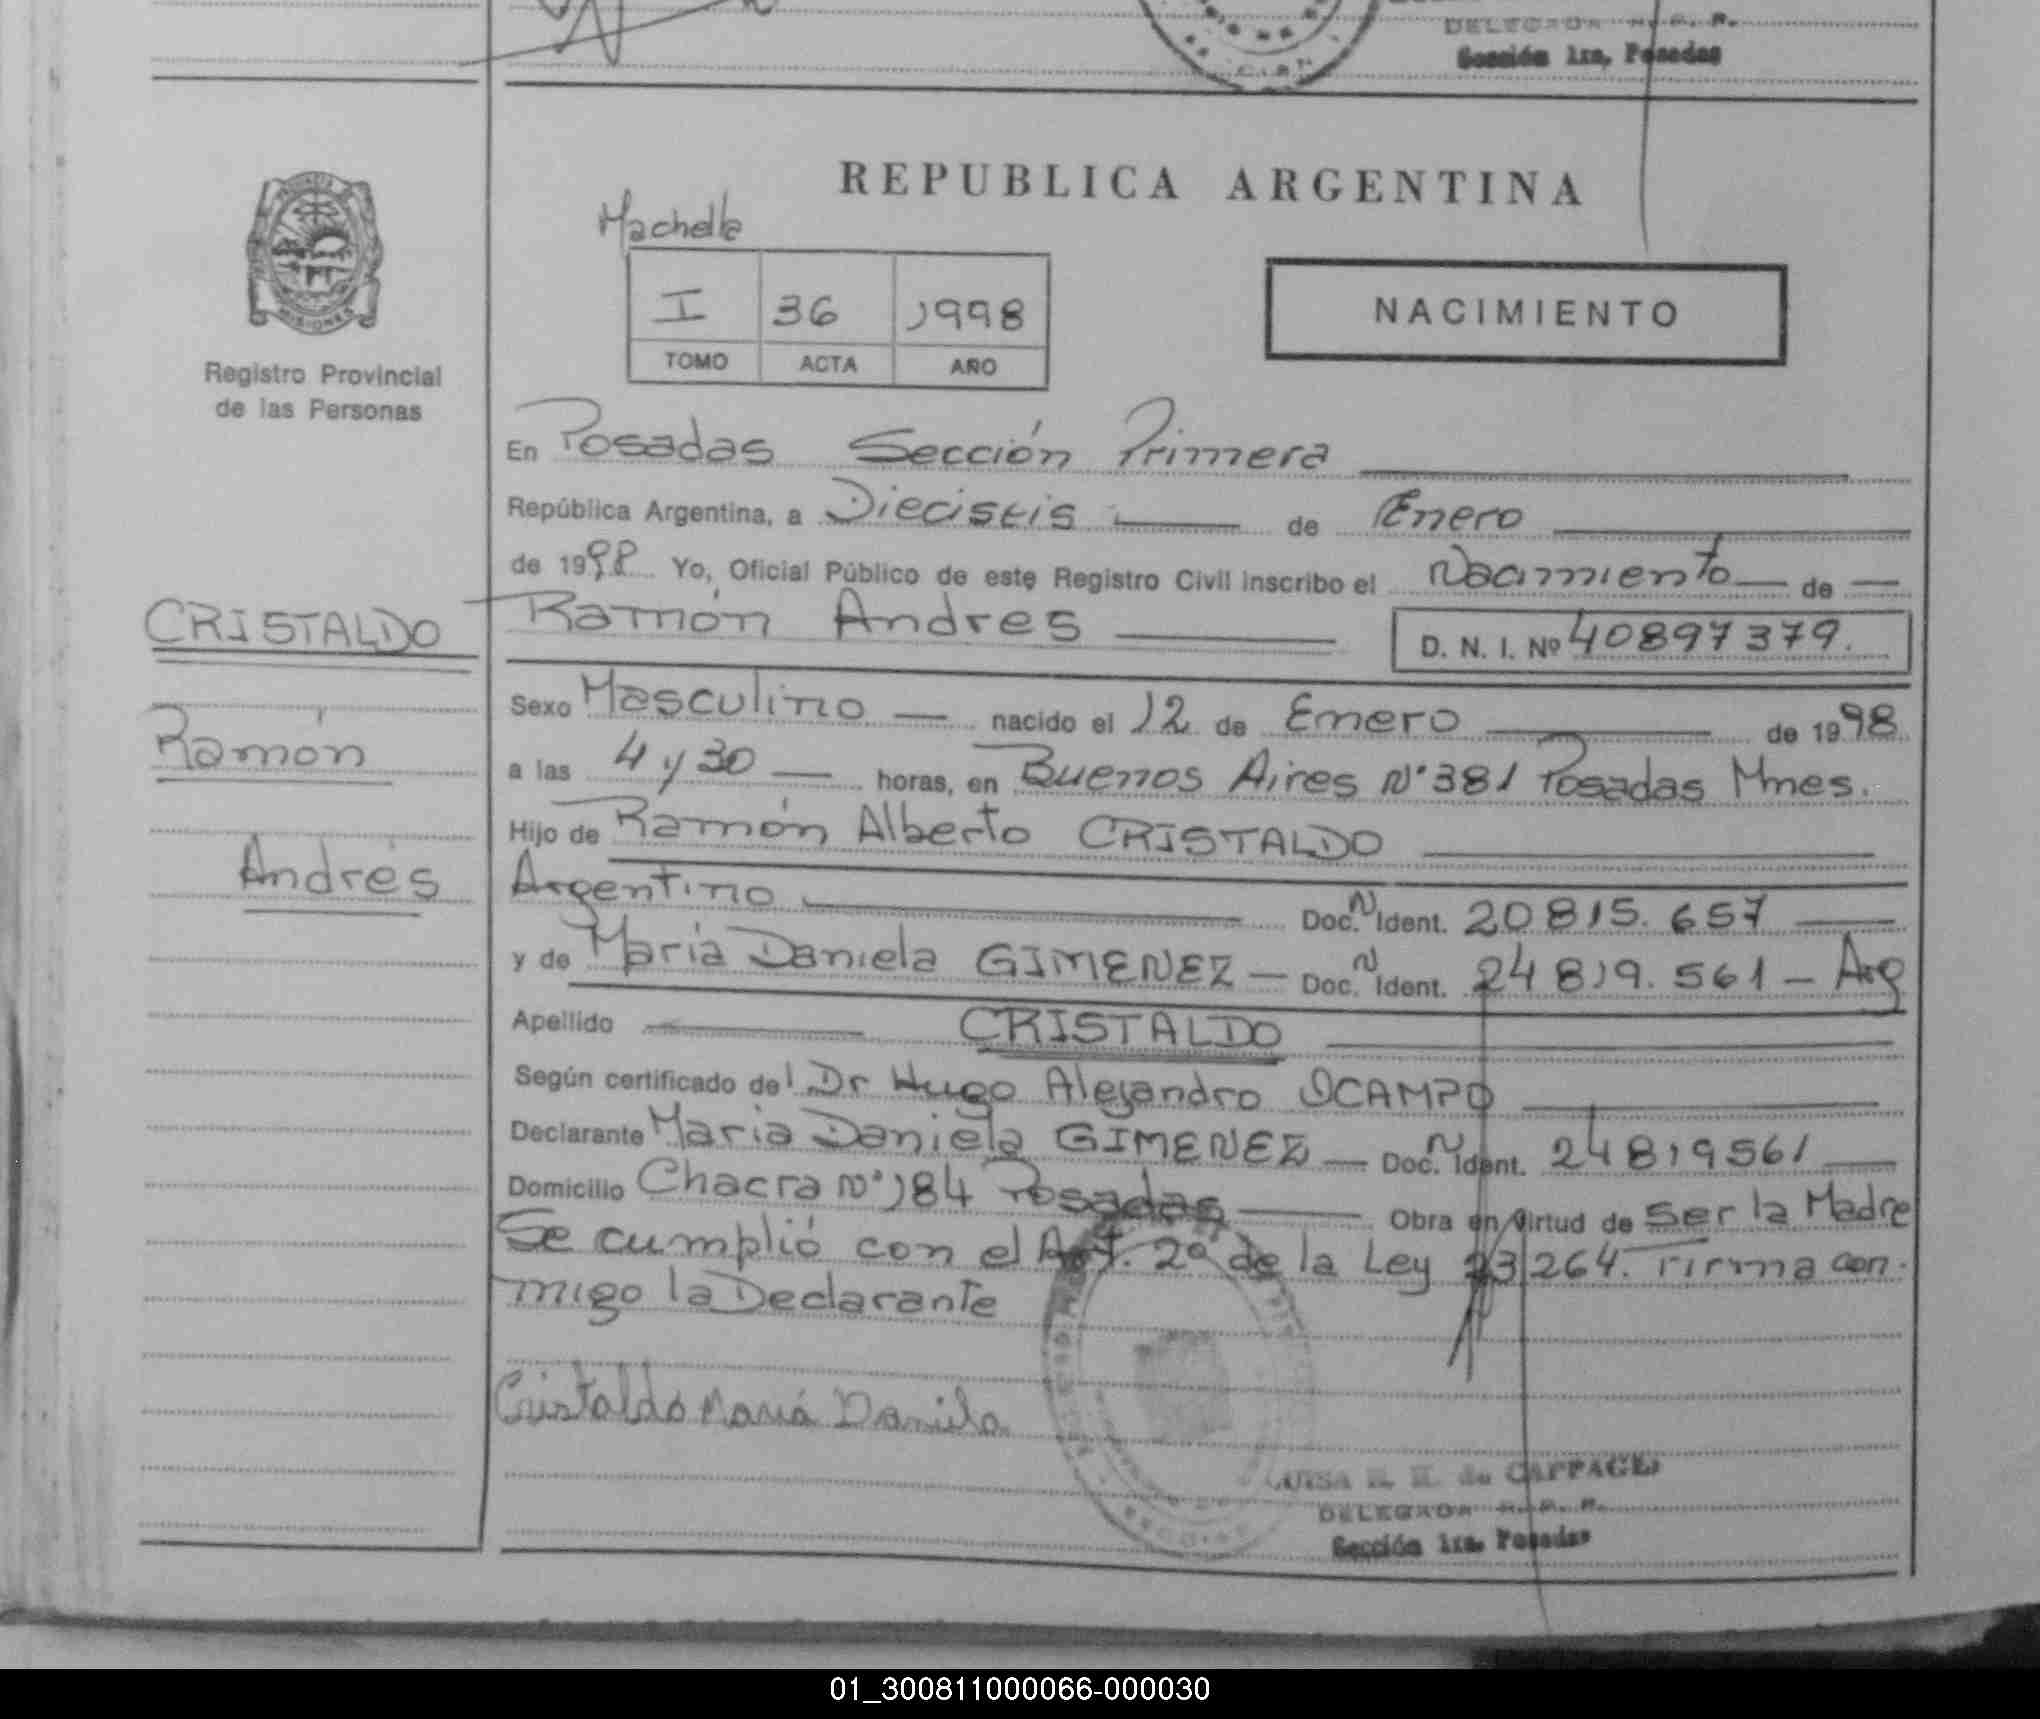 DELEGADA R. P. P.
Sección 1ra. Posadas
REPUBLICA ARGENTINA
MISIONES
Registro Provincial
de las Personas
I 36 1998
TOMO ACTA AÑO
NACIMIENTO
En Posadas Sección Primera
República Argentina, a Dieciseis de Enero
de 1998 Yo, Oficial Público de este Registro Civil inscribo el Nacimiento de
CRISTALDO
Ramón Andres
D. N. I. Nº 40897379.
Sexo Masculino nacido el 12 de Enero de 1998
Ramón
a las 4 y 30 horas, en Buenos Aires Nº 381 Posadas Mnes.
Hijo de Ramón Alberto CRISTALDO
Andrés
Argentino Doc. N Ident. 20815.657
y de Maria Daniela GIMENEZ - Doc. N Ident. 24819.561 - Arg
Apellido CRISTALDO
Según certificado del Dr Hugo Alejandro OCAMPO
Declarante Maria Daniela GIMENEZ - Doc. N Ident. 24819561
Domicilio Chacra Nº 184 Posadas Obra en virtud de Ser la Madre
Se cumplió con el Art. 2º de la Ley 23264. Firma con-
migo la Declarante
Cristaldo Maria Daniela
DELEGADA R. P. P.
Sección 1ra. Posadas
01_300811000066-000030